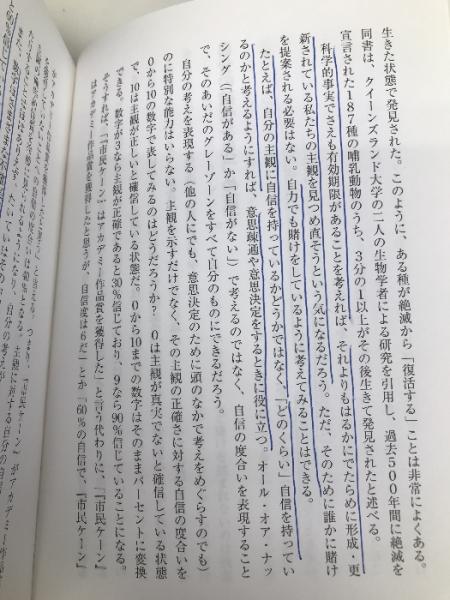 生きた状態で発見された。このように、ある種が絶滅から「復活する」ことは非常によくある。
同書は、クイーンズランド大学の二人の生物学者による研究を引用し、過去500年間に絶滅を
宣言された187種の哺乳動物のうち、3分の1以上がその後生きて発見されたと述べる。
科学的事実でさえも有効期限があることを考えれば、それよりもはるかにでたらめに形成・更
新されている私たちの主観を見つめ直そうという気になるだろう。ただ、そのために誰かに賭け
を提案される必要はない。自力でも賭けをしているように考えてみることはできる。
たとえば、自分の主観に自信を持っているかどうかではなく、「どのくらい」自信を持ってい
るのかと考えるようにすれば、意思疎通や意思決定をするときに役に立つ。オール・オア・ナッ
シング(「自信がある」か「自信がない」)で考えるのではなく、自信の度合いを表現すること
で、そのあいだのグレーゾーンをすべて自分のものにできるだろう。
自分の考えを表現する(他の人にでも、意思決定のために頭のなかで考えをめぐらすのでも)
のに特別な能力はいらない。主観を示すだけでなく、その主観の正確さに対する自信の度合いを
0から10の数字で表してみるのはどうだろうか? 0は主観が真実でないと確信している状態
で、10は主観が正しいと確信している状態だ。0から10までの数字はそのままパーセントに変換
できる。数字が3なら主観が正確であると30%信じており、9なら90%信じていることになる。
そうすれば、「『市民ケーン』はアカデミー作品賞を獲得した」と言う代わりに、「『市民ケーン』
はアカデミー作品賞を獲得したと思うが、自信度は6だ」とか「60%の自信で、『市民ケーン』